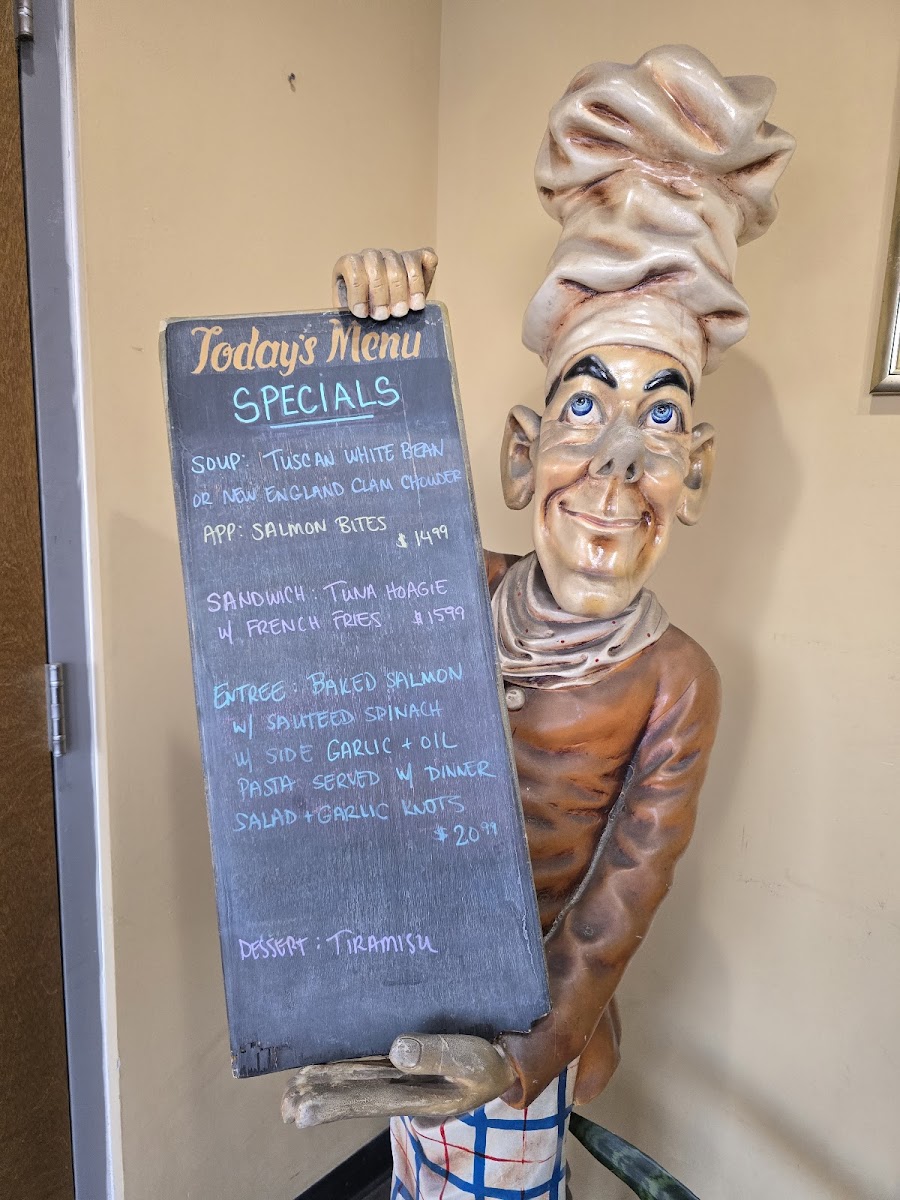 Today's Menu
SPECIALS
SOUP: TUSCAN WHITE BEAN
OR NEW ENGLAND CLAM CHOWDER
APP: SALMON BITES
$ 14.99
SANDWICH: TUNA HOAGIE
W/ FRENCH FRIES $15.99
ENTREE: BAKED SALMON
W/ SAUTEED SPINACH
W/ SIDE GARLIC + OIL
PASTA SERVED W/ DINNER
SALAD + GARLIC KNOTS
$ 20.99
DESSERT: TIRAMISU